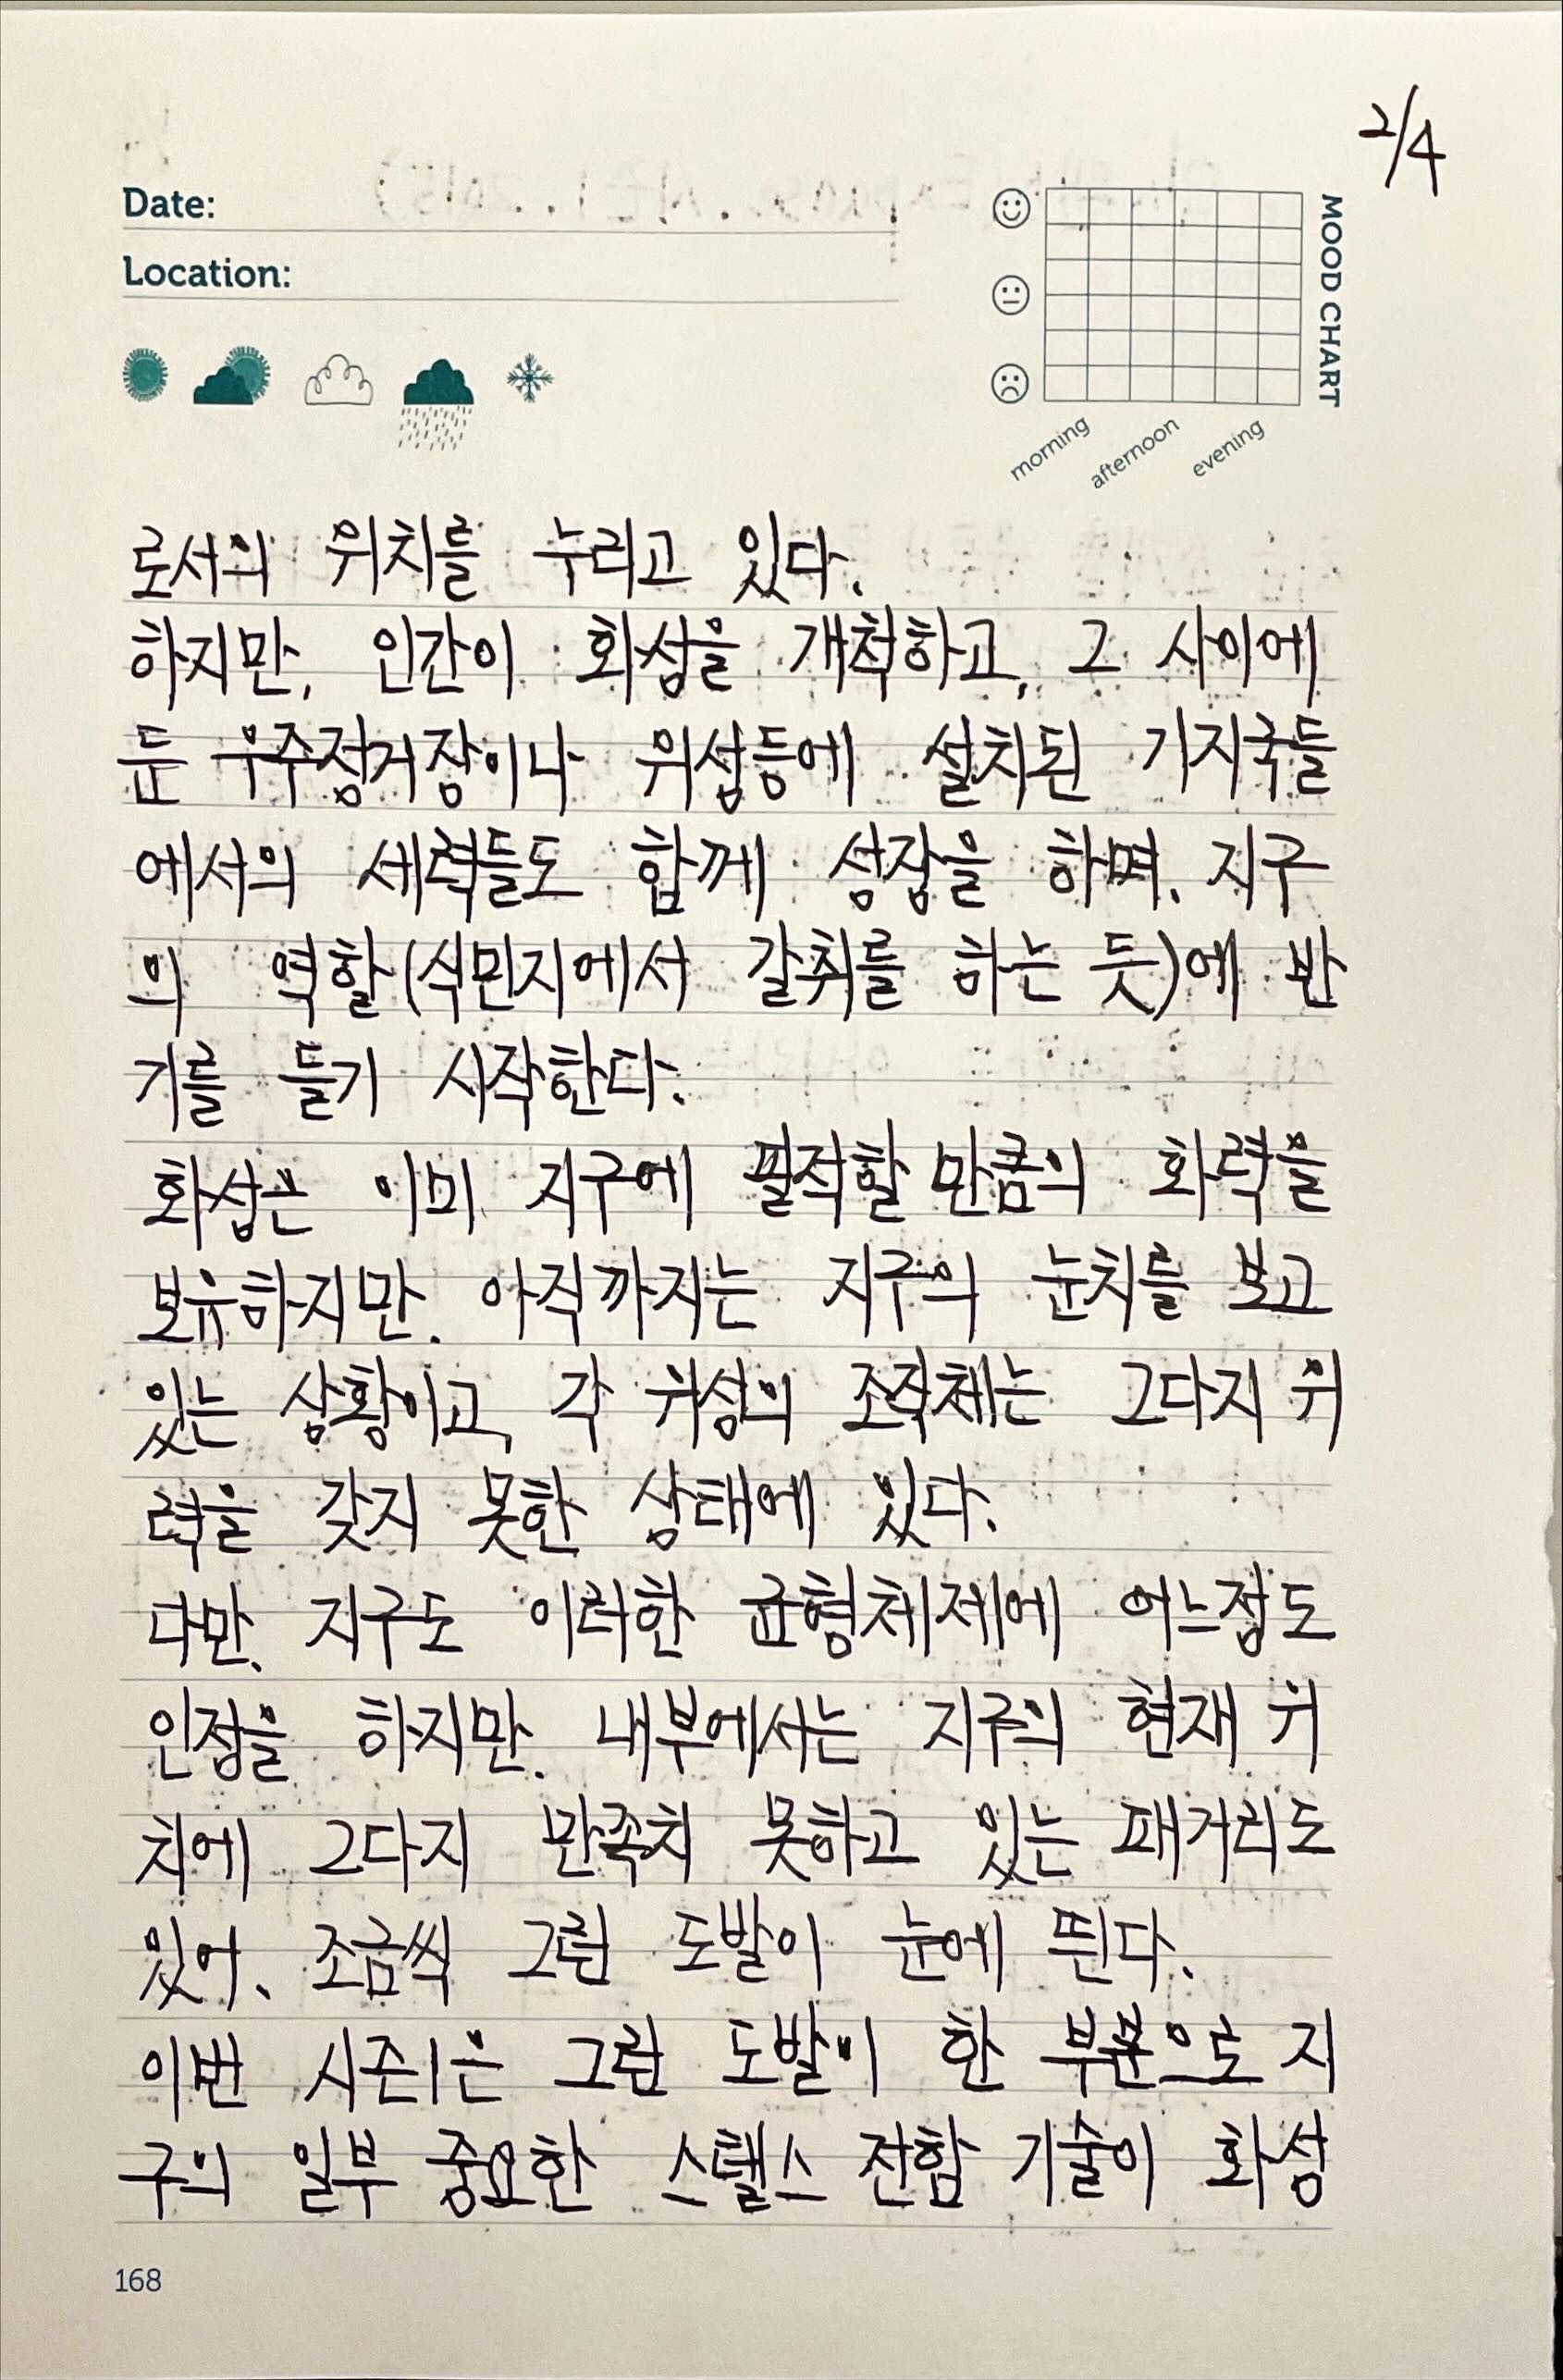 2/4
Date:
Location:
MOOD CHART
morning afternoon evening
로서의 위치를 누리고 있다.
하지만, 인간이 화성을 개척하고, 그 사이에
둔 우주정거장이나 위성등에 설치된 기지국들
에서의 세력들도 함께 성장을 하며, 지구
의 역할(식민지에서 갈취를 하는 듯)에 반
기를 들기 시작한다.
화성은 이미 지구에 필적할 만큼의 화력을
보유하지만, 아직까지는 지구의 눈치를 보고
있는 상황이고, 각 위성의 조직체는 그다지 위
력을 갖지 못한 상태에 있다.
다만, 지구도 이러한 균형체제에 어느정도
인정을 하지만, 내부에서는 지구의 현재 위
치에 그다지 만족치 못하고 있는 패거리도
있어, 조금씩 그런 도발이 눈에 띈다.
이번 시즌1은 그런 도발이 한 부분으로 지
구의 일부 중요한 스텔스 전함 기술이 화성
168